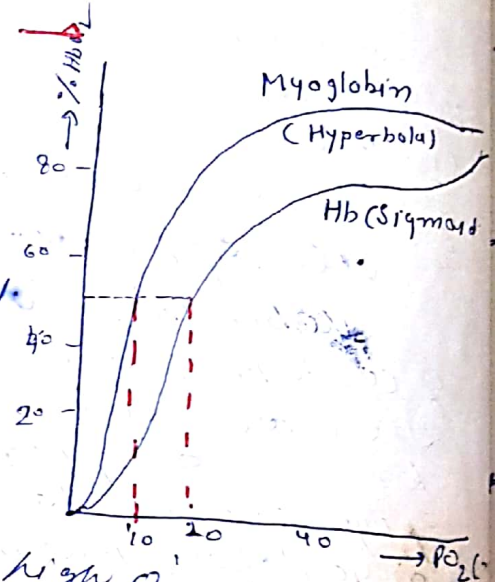 → % HbO2
Myoglobin
(Hyperbola)
80
Hb (Sigmoid
60
40
20
10 20 40
→ PO2 (
high